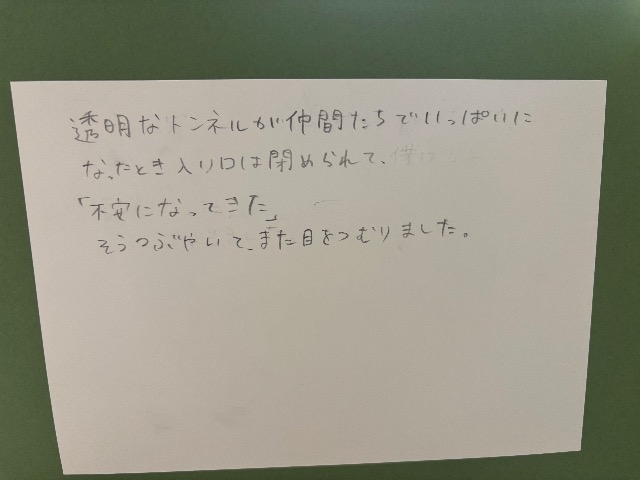 透明なトンネルが仲間たちでいっぱいに
なったとき入り口は閉められて、僕は
「不安になってきた」
そうつぶやいて、また目をつむりました。